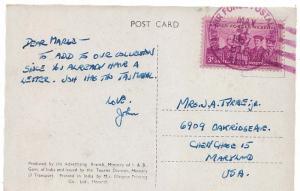 POST CARD
DEAR MARGE -
TO ADD TO OUR COLLECTION
SINCE YOU ALREADY HAVE A
LETTER. JOH HAS THE TAJ MAHAL.
LOVE,
John
MRS. W. A. TYREE, JR.
6909 OAKRIDGE AVE.
CHEVY CHASE 15
MARYLAND
U.S.A.
Produced by the Advertising Branch, Ministry of I. & B.
Govt. of India and issued by the Tourist Division, Ministry
of Transport. Printed in India by
Co. Ltd.,